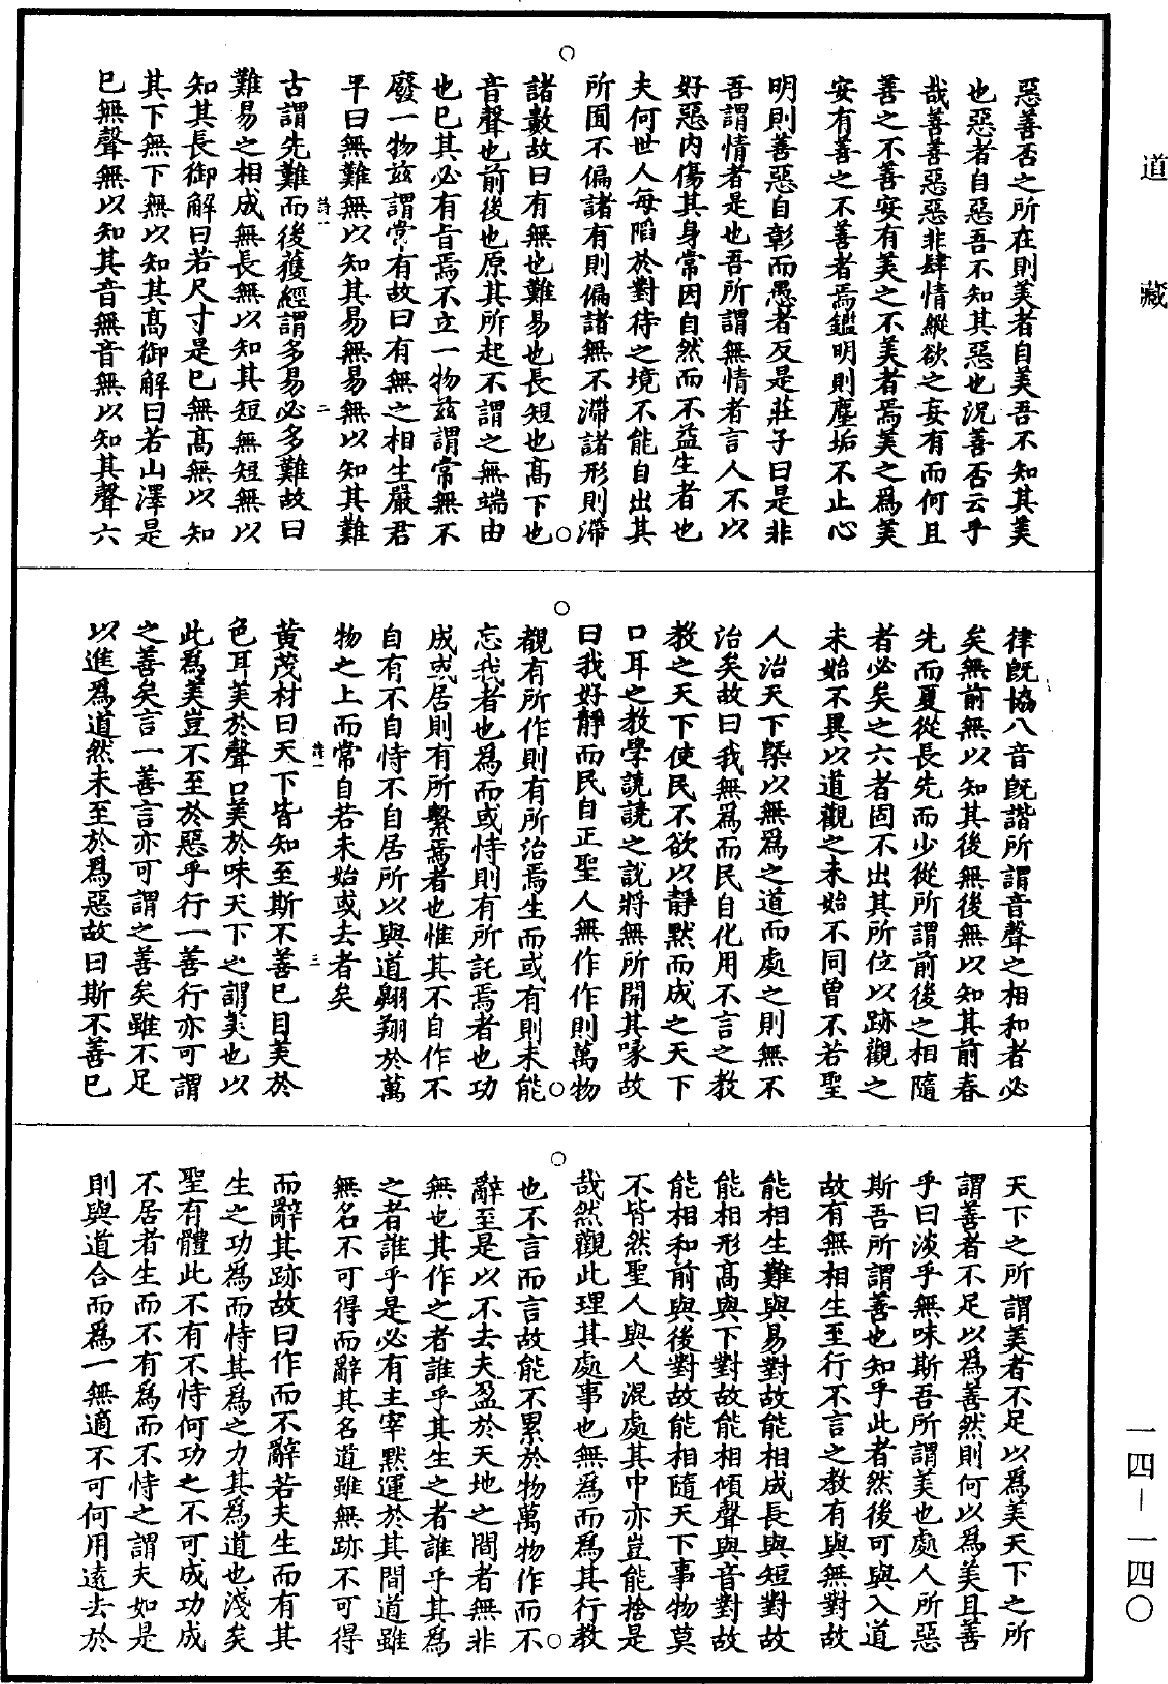 道藏
一四—一四〇
惡善否之所在則美者自美吾不知其美
也惡者自惡吾不知其惡也況善否云乎
哉善善惡惡非肆情縱欲之妄有而何且
善之不善安有美之不美者焉美之爲美
安有善之不善者焉鑑明則塵垢不止心
明則善惡自彰而愚者反是莊子曰是非
吾謂情者是也吾所謂無情者言人不以
好惡內傷其身常因自然而不益生者也
夫何世人每陷於對待之境不能自出其
所囿不偏諸有則偏諸無不滯諸形則滯
諸數故曰有無也難易也長短也高下也
音聲也前後也原其所起不謂之無端由
也巳其必有旨焉不立一物玆謂常無不
廢一物玆謂常有故曰有無之相生嚴君
平曰無難無以知其易無易無以知其難
詩一 二
古謂先難而後獲經謂多易必多難故曰
難易之相成無長無以知其短無短無以
知其長御解曰若尺寸是巳無高無以知
其下無下無以知其高御解曰若山澤是
巳無聲無以知其音無音無以知其聲六
律旣協八音旣諧所謂音聲之相和者必
矣無前無以知其後無後無以知其前春
先而夏從長先而少從所謂前後之相隨
者必矣之六者固不出其所位以跡觀之
未始不異以道觀之未始不同曾不若聖
人治天下槩以無爲之道而處之則無不
治矣故曰我無爲而民自化用不言之教
教之天下使民不欲以靜默而成之天下
口耳之教學譊譊之說將無所開其喙故
曰我好靜而民自正聖人無作作則萬物
覩有所作則有所治焉生而或有則未能
忘我者也爲而或恃則有所託焉者也功
成或居則有所繫焉者也惟其不自作不
自有不自恃不自居所以與道翺翔於萬
物之上而常自若未始或去者矣
詩一 三
黃茂材曰天下皆知至斯不善巳目美於
色耳美於聲口美於味天下之謂美也以
此爲美豈不至於惡乎行一善行亦可謂
之善矣言一善言亦可謂之善矣雖不足
以進爲道然未至於爲惡故曰斯不善巳
天下之所謂美者不足以爲美天下之所
謂善者不足以爲善然則何以爲美且善
乎曰淡乎無味斯吾所謂美也處人所惡
斯吾所謂善也知乎此者然後可與入道
故有無相生至行不言之教有與無對故
能相生難與易對故能相成長與短對故
能相形高與下對故能相傾聲與音對故
能相和前與後對故能相隨天下事物莫
不皆然聖人與人混處其中亦豈能捨是
哉然觀此理其處事也無爲而爲其行教
也不言而言故能不累於物萬物作而不
辭至是以不去夫盈於天地之間者無非
無也其作之者誰乎其生之者誰乎其爲
之者誰乎是必有主宰默運於其間道雖
無名不可得而辭其名道雖無跡不可得
而辭其跡故曰作而不辭若夫生而有其
生之功爲而恃其爲之力其爲道也淺矣
聖有體此不有不恃何功之不可成功成
不居者生而不有爲而不恃之謂夫如是
則與道合而爲一無適不可何用遠去於